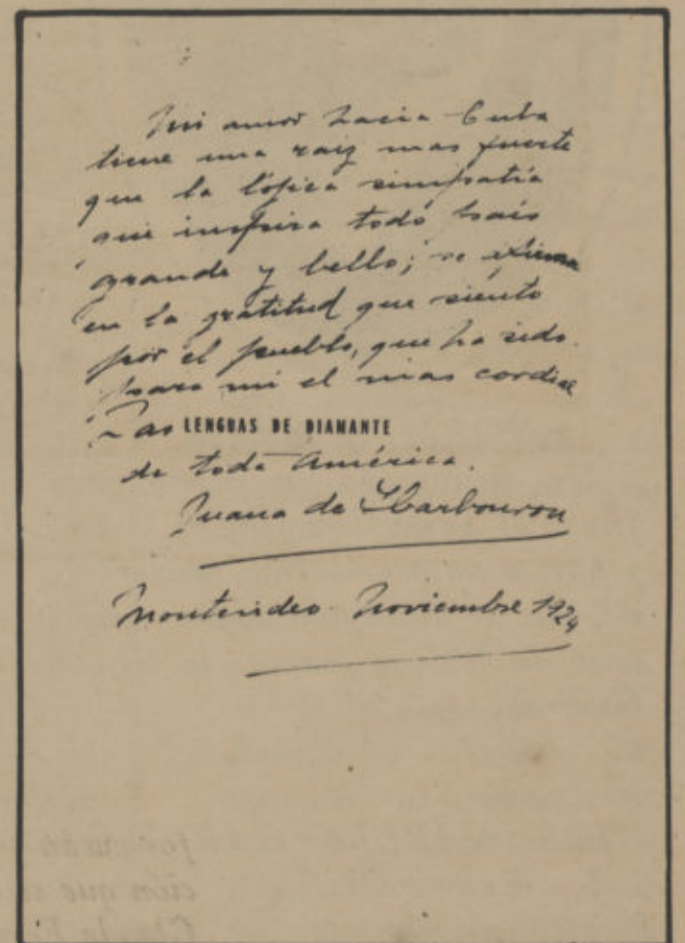 Mi amor hacia Cuba
tiene una raiz mas fuerte
que la lógica simpatía
que inspira todo país
grande y bello; se afirma
en la gratitud que siento
por el pueblo, que ha sido
para mi el mas cordial
LENGUAS DE DIAMANTE
de toda América.
Juana de Ibarbourou
Montevideo Noviembre 1924